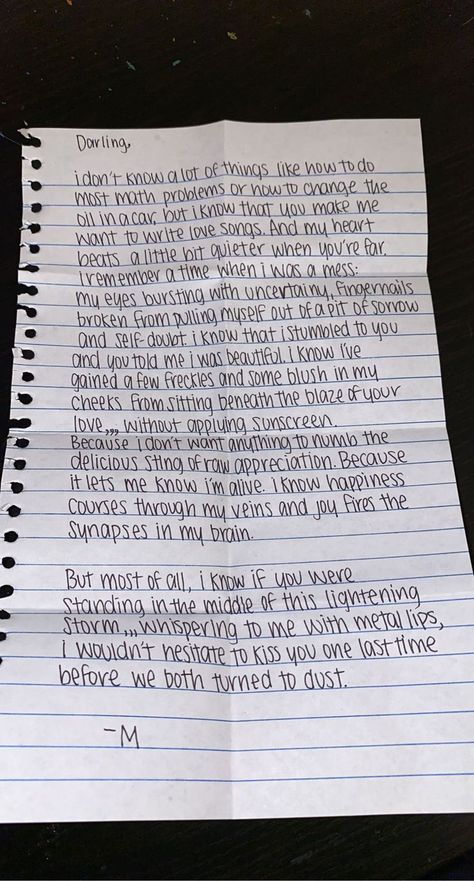 Darling,
i don't know a lot of things like how to do
most math problems or how to change the
oil in a car. but i know that you make me
want to write love songs. And my heart
beats a little bit quieter when you're far.
I remember a time when i was a mess:
my eyes bursting with uncertainy, fingernails
broken from pulling myself out of a pit of sorrow
and self-doubt i know that i stumbled to you
and you told me i was beautiful. i know i've
gained a few freckles and some blush in my
cheeks from sitting beneath the blaze of your
love,,, without applying sunscreen.
Because i don't want anything to numb the
delicious sting of raw appreciation. Because
it lets me know i'm alive. i know happiness
courses through my veins and joy fires the
synapses in my brain.
But most of all, i know if you were
standing in the middle of this lightening
storm,,, whispering to me with metal lips,
i wouldn't hesitate to kiss you one last time
before we both turned to dust.
-M